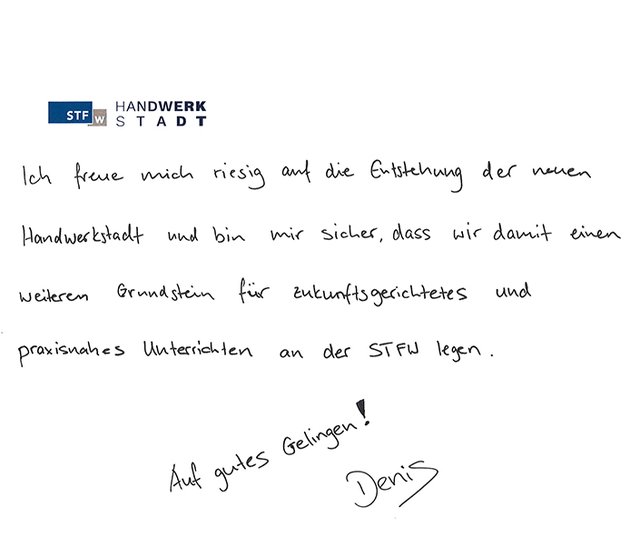 STF W HANDWERK
STADT
Ich freue mich riesig auf die Entstehung der neuen
Handwerkstadt und bin mir sicher, dass wir damit einen
weiteren Grundstein für zukunftsgerichtetes und
praxisnahes Unterrichten an der STFW legen.
Auf gutes Gelingen!
Denis